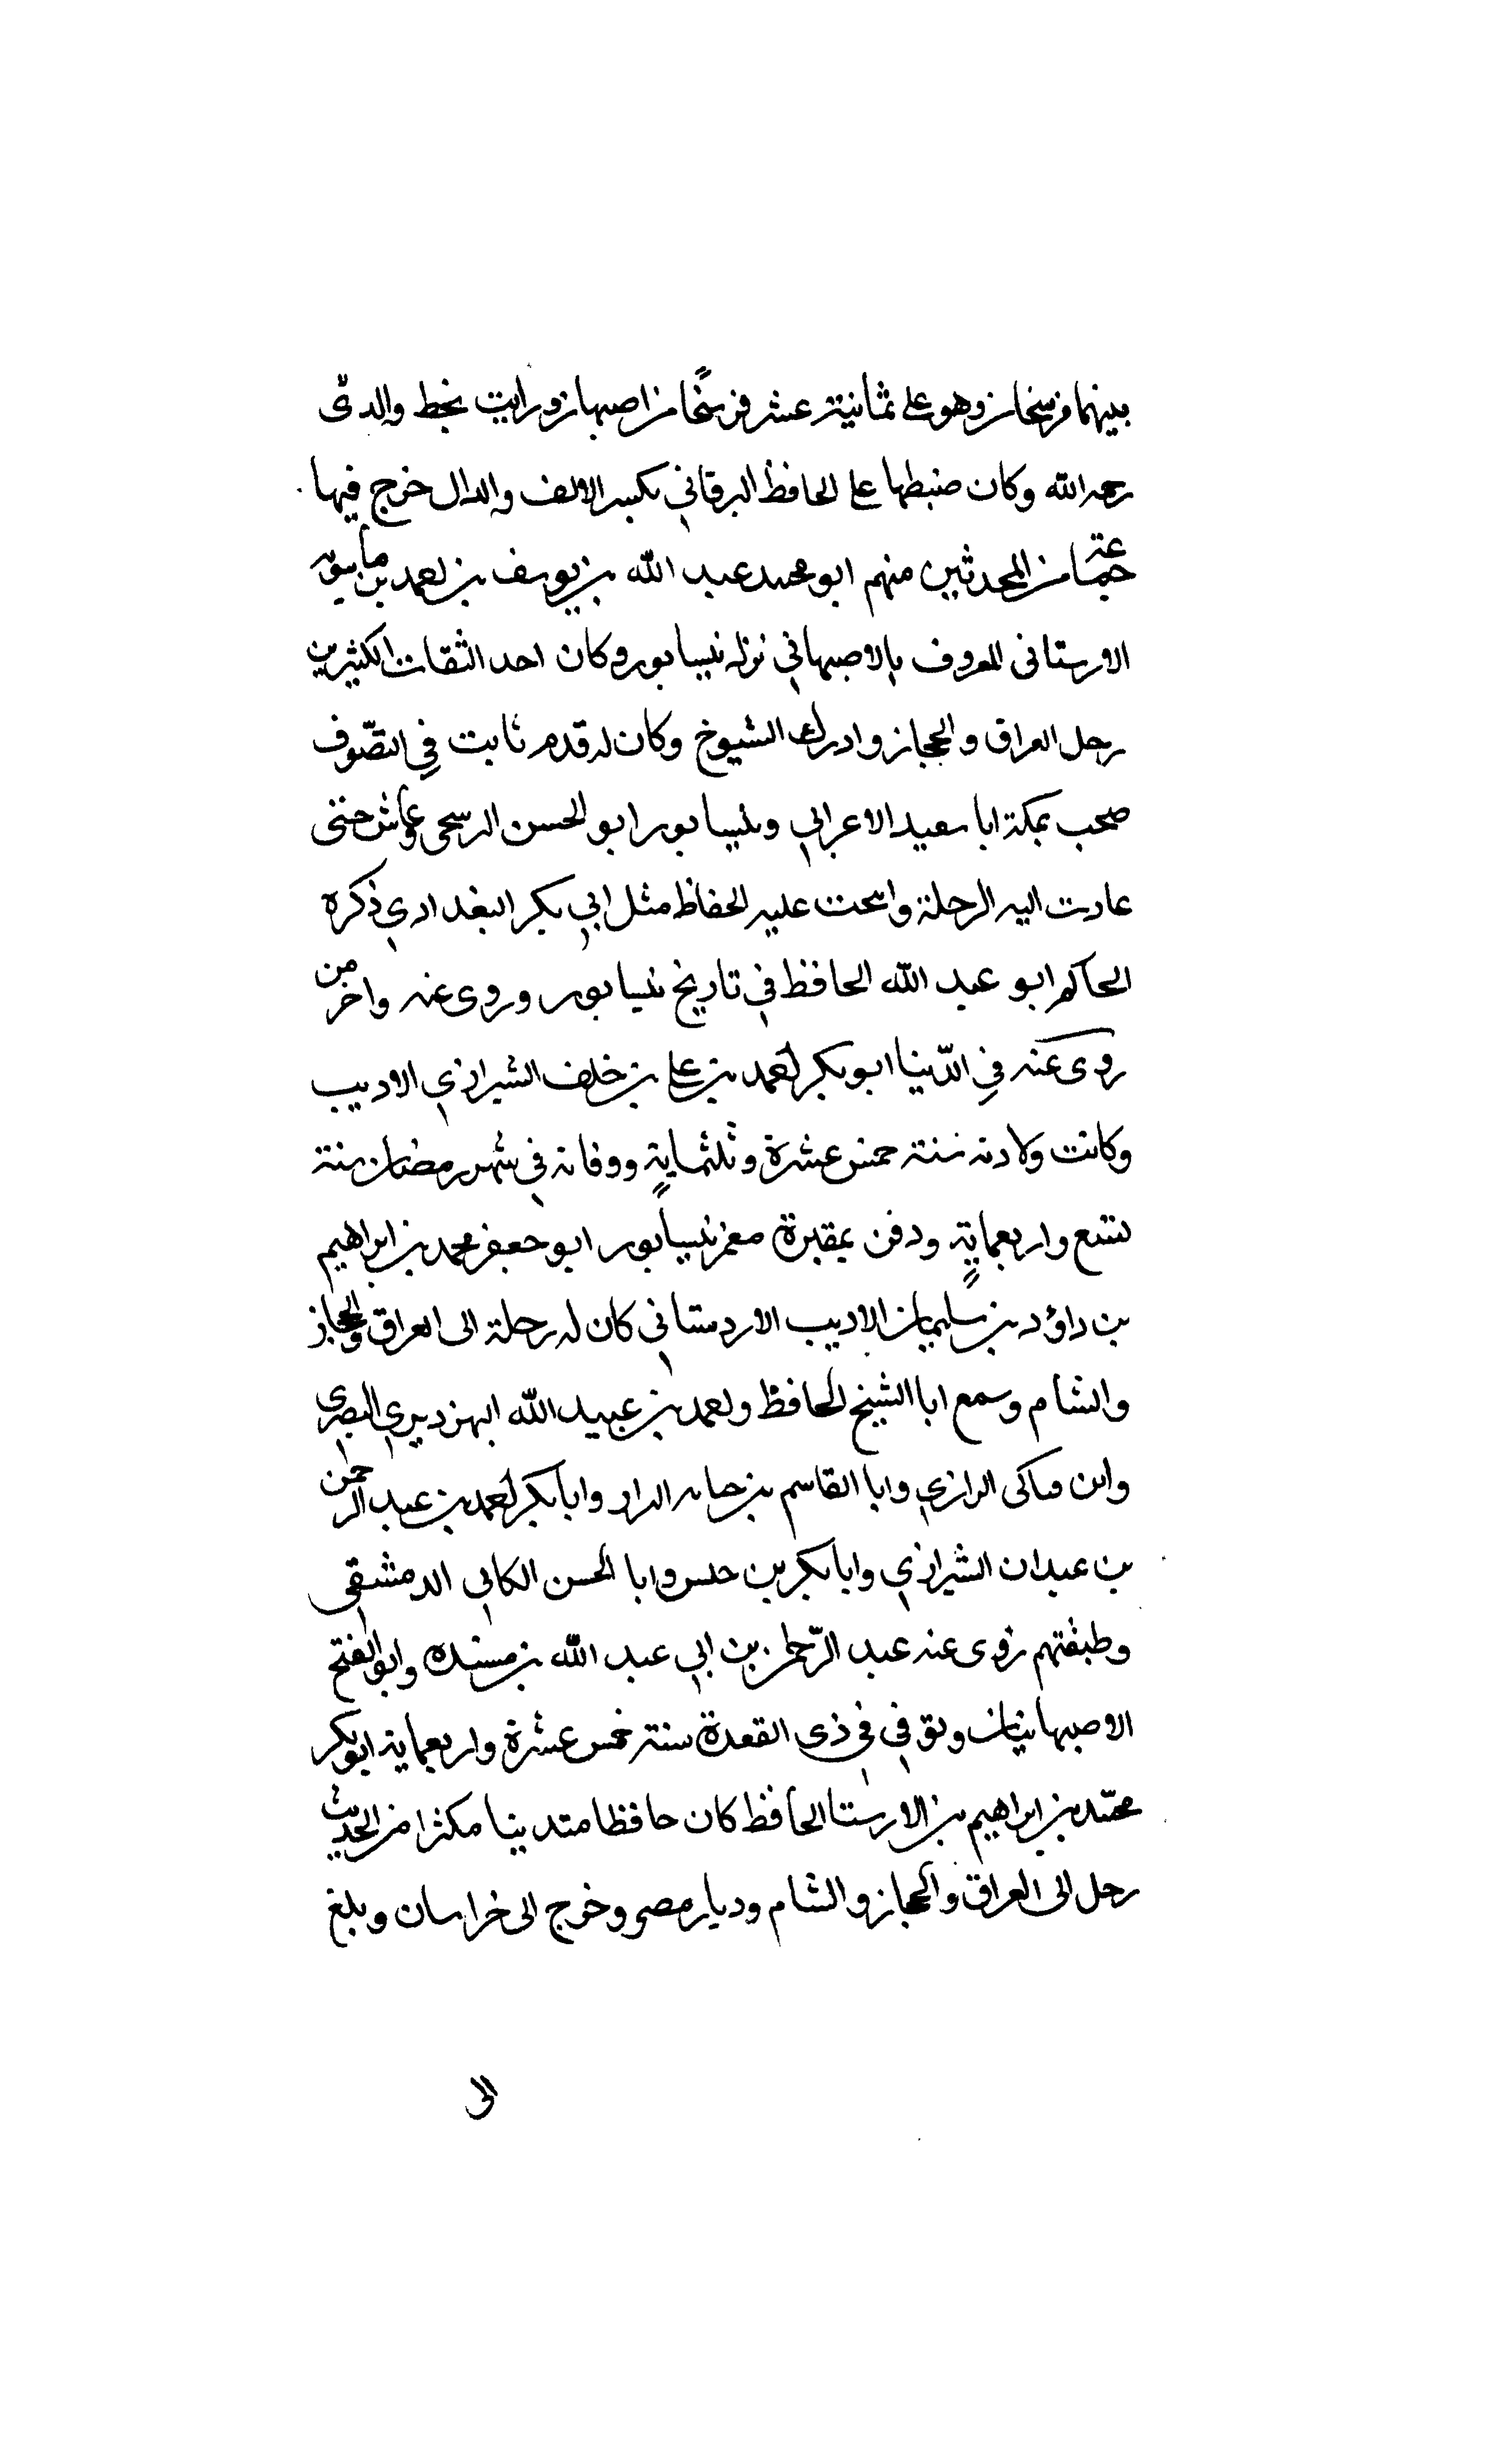 بينهما فرسخان وهو على ثمانية عشر فرسخًا من اصبهان ورايت بخط والدى
رحمه الله وكان ضبطها على الحافظ البرقاني بكسر الالف والدال خرج فيها
جماعة من المحدثين منهم ابو محمد عبد الله بن يوسف بن احمد بن مامويه
الارستانى المعروف بالاصبهاني نزله نيسابور وكان احد الثقات الكثيرين
رحل العراق والحجاز وادرك الشيوخ وكان له قدم ثابت في التصّوف
صحب بمكة ابا سعيد الاعرابي وبنيسابور ابو الحسن وعاش حتى
عادت اليه الرحلة عليه الحفاظ مثل ابي بكر البغدادي ذكره
الحاكم ابو عبد الله الحافظ في تاريخ نيسابور وروى عنه واخر من
روى عنه في الدّنيا ابو بكر احمد بن على بن خلف الشيرازي الاديب
وكانت ولادته سنة خمس عشرة وثلثماية ووفاته في شهر رمضان سنة
تسع واربعماية ودفن بمقبرة نيسابور ابو جعفر محمد بن ابراهيم
بن داؤد بن سليمان الاديب الاردستاني كان له رحلة الى العراق والحجاز
والشام وسمع ابا الشيخ الحافظ واحمد بن عبيد الله البصرى
وابن الرازي وابا القاسم بن وابا بكر احمد بن عبد الرحمن
بن عبدان الشيرازي وابا بكر بن وابا الحسن الكلابي الدمشقى
وطبقتهم روى عنه عبد الرّحمن بن ابي عبد الله بن منده وابو الفتح
الاصبهانيان وتوفي في ذى القعدة سنة خمس عشرة واربعماية ابو بكر
محمّد بن ابراهيم بن الارستا الحافظ كان حافظا متدينا مكثرا من الحديث
رحل الى العراق والحجاز والشام وديار مصر وخرج الى خراسان وبلغ
الى